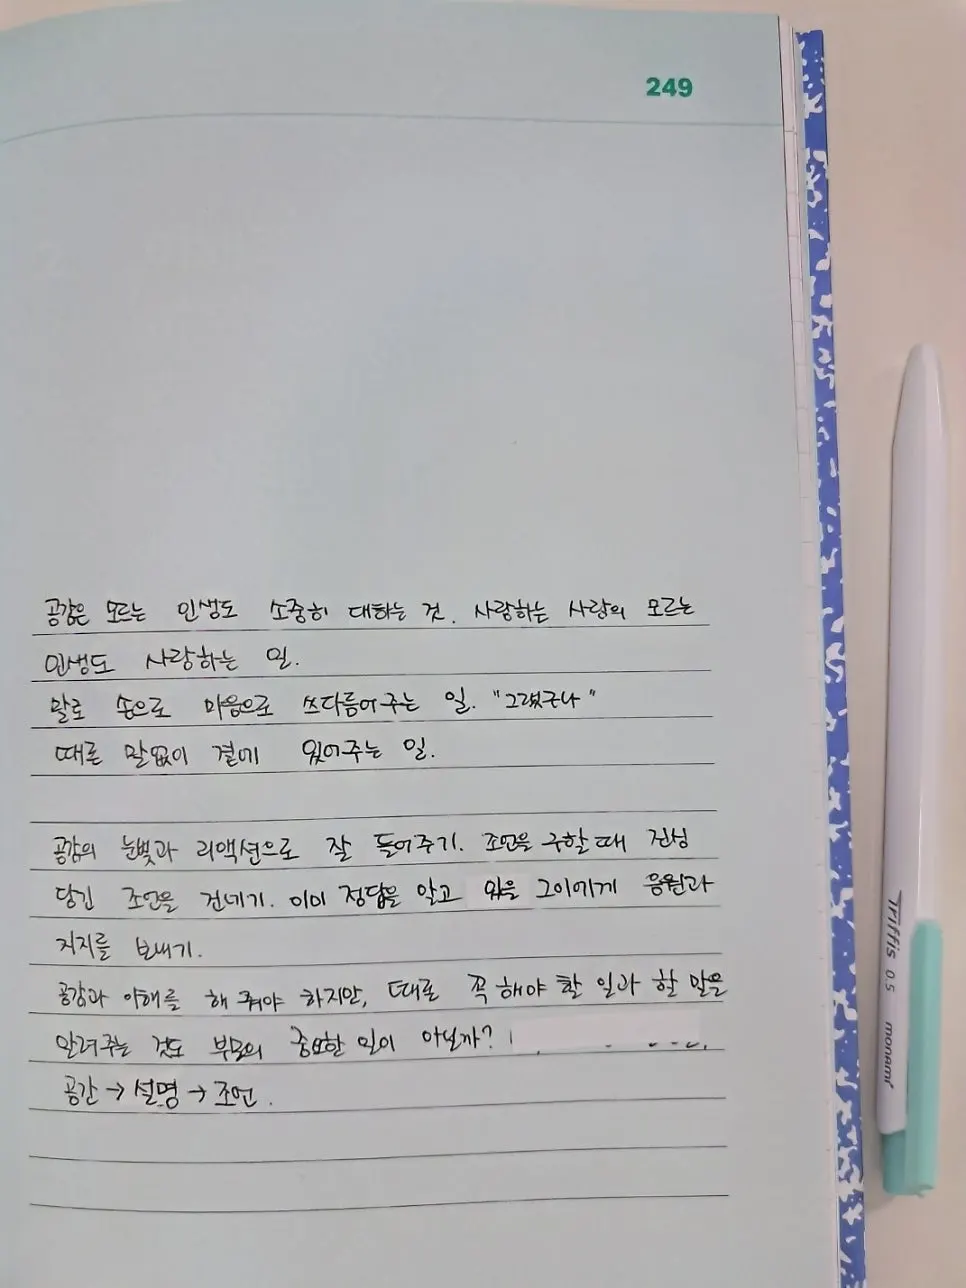 249
공감은 모르는 인생도 소중히 대하는 것. 사랑하는 사람의 모르는
인생도 사랑하는 일.
말로 손으로 마음으로 쓰다듬어주는 일. "그랬구나"
때론 말없이 곁에 있어주는 일.
공감의 눈빛과 리액션으로 잘 들어주기. 조언을 구할 때 진심
담긴 조언을 건네기. 이미 정답을 알고 있을 그이에게 응원과
지지를 보내기.
공감과 이해를 해 줘야 하지만, 때로 꼭 해야 할 일과 할 말을
알려주는 것도 부모의 중요한 일이 아닐까?
공감 → 설명 → 조언.
Triffis 0.5 monami